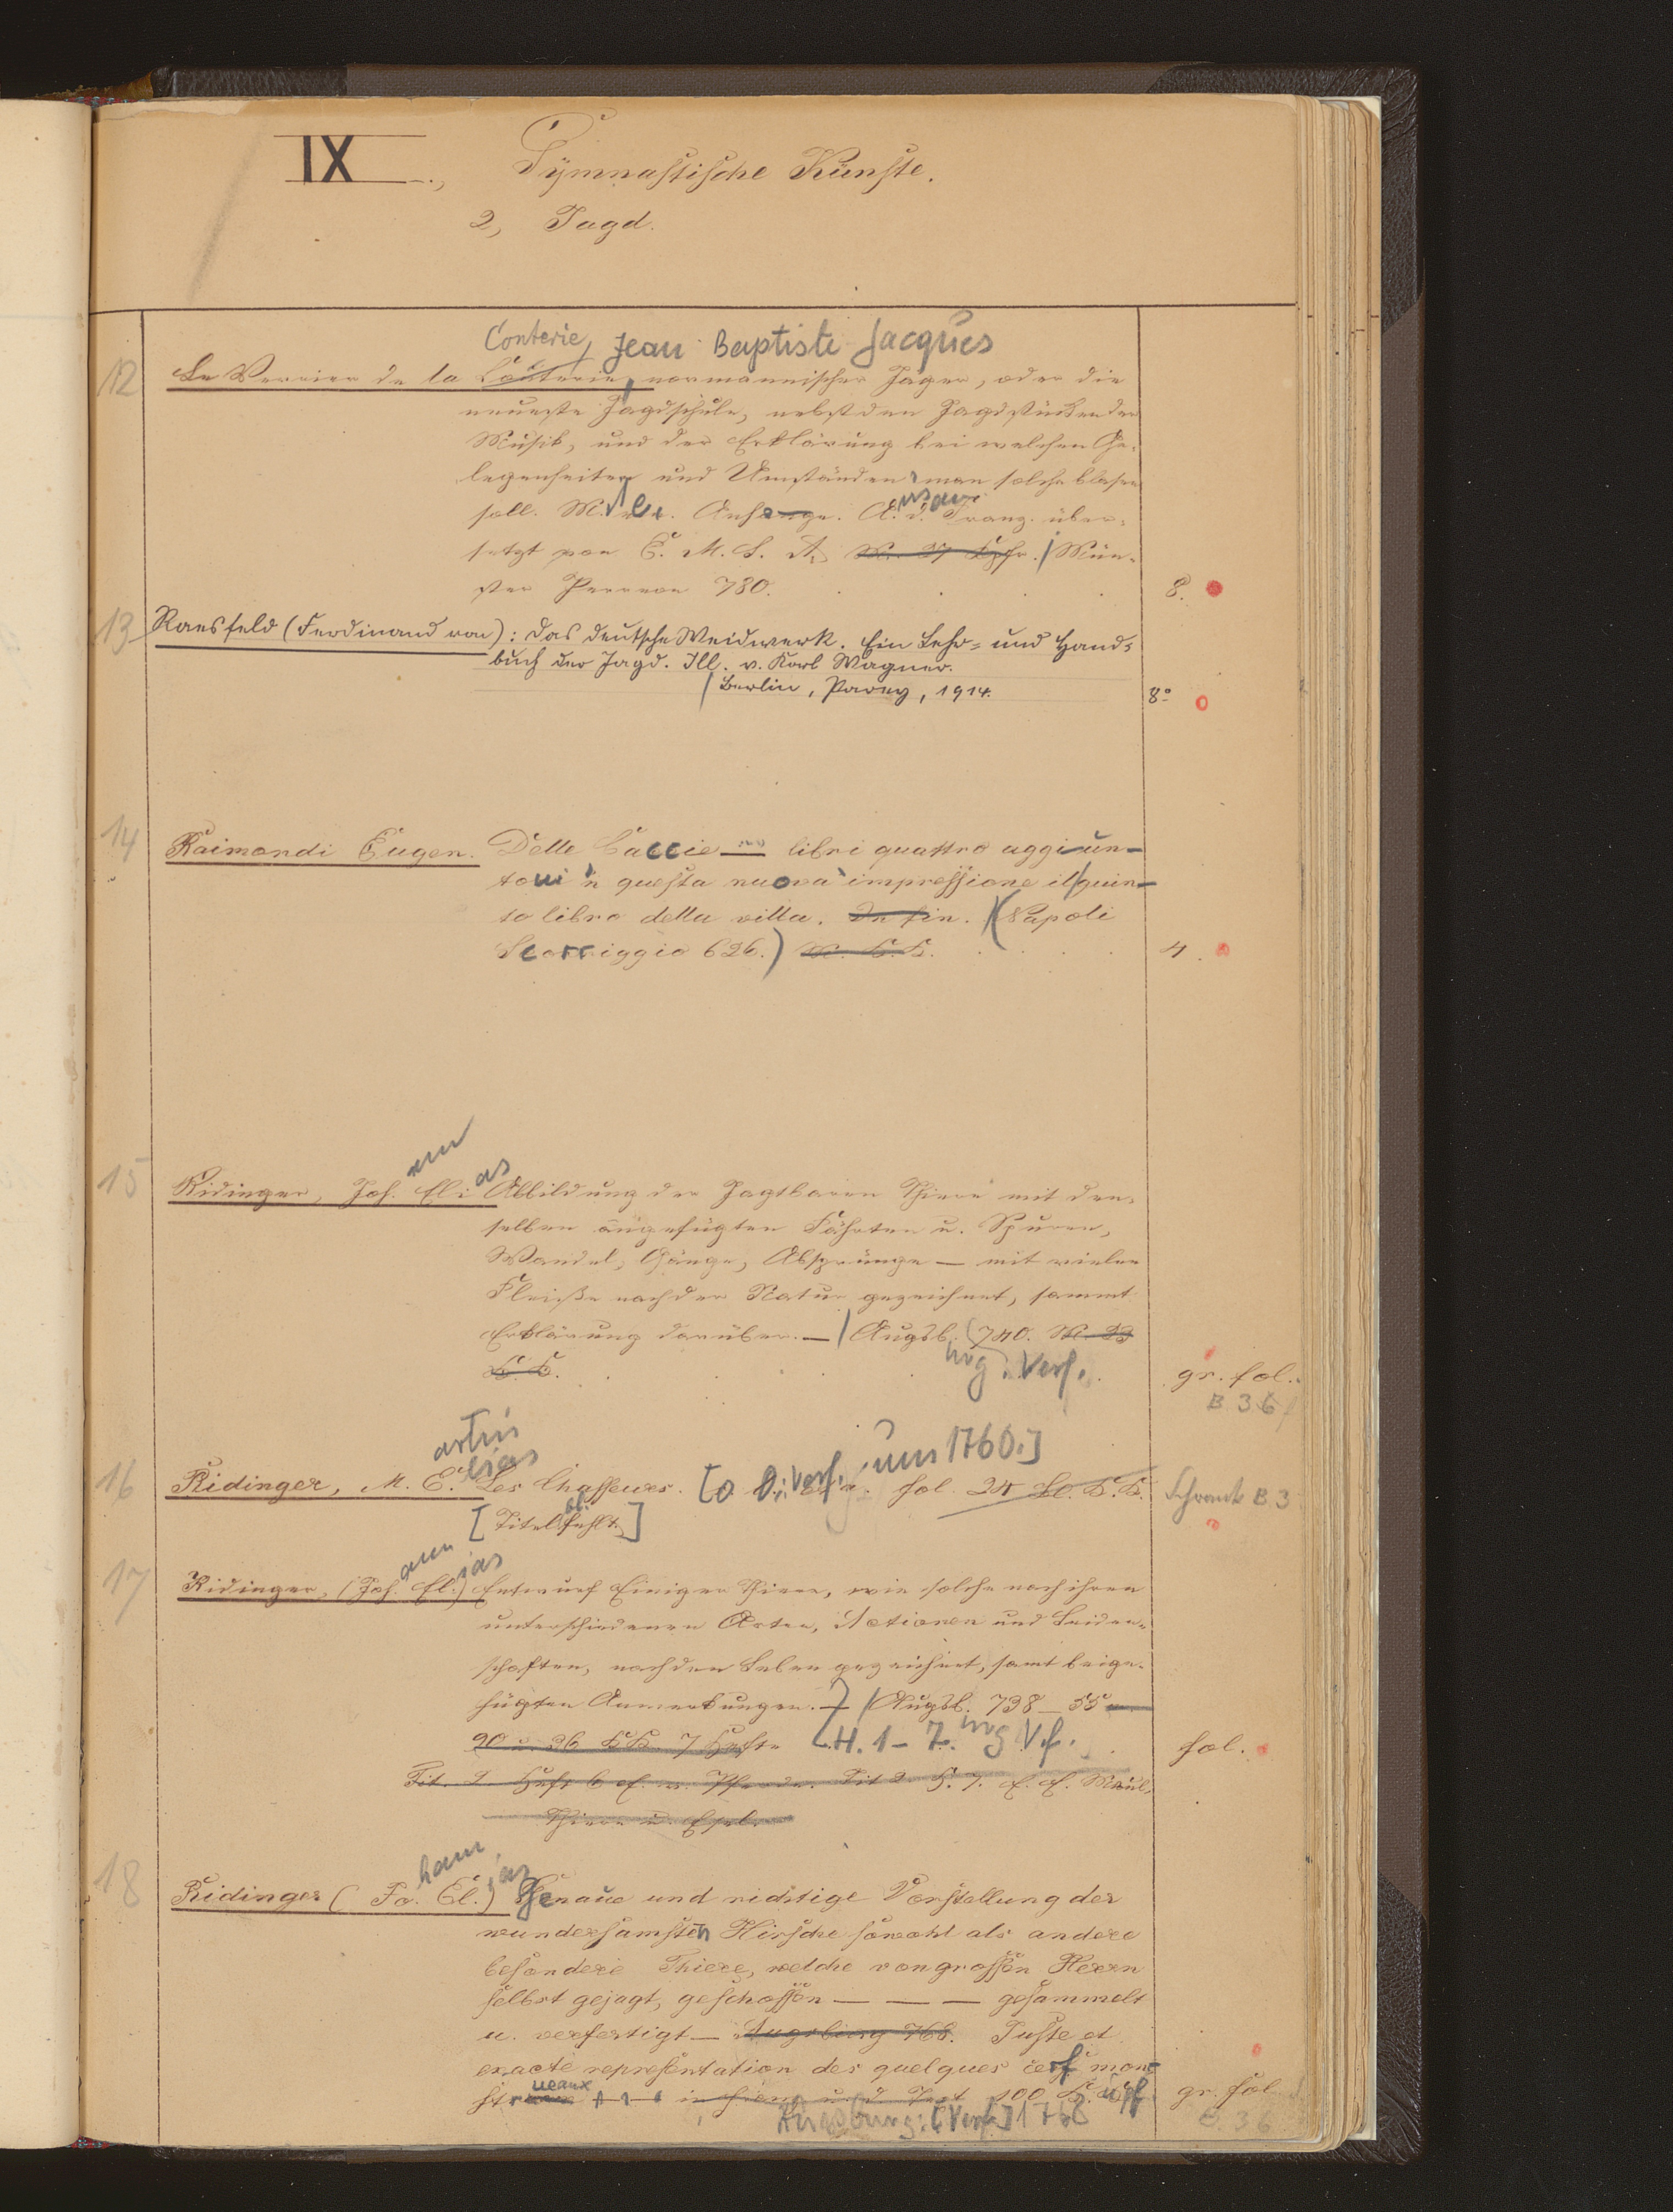 IX., Gymnastische Künste.
2, Jagd.
Conterie, Jean Baptiste Jacques
12 Le Verrier de la Conterie, normännischer Jäger, oder die
neueste Jagdschule, nebst den Jagdstücken der
Musik, und der Erklärung bei welchen Ge-
legenheiten und Umständen man solche blasen
soll. M. e. Anhange. A. d. Franz. über-
setzt von C. M. S. A. M. 27 Kpfr. / Mün-
ster Perrenon 780. 8.
13 Raesfeld (Ferdinand von): Das deutsche Weidwerk. Ein Lehr- und Hand-
buch der Jagd. Ill. v. Karl Wagner.
/ Berlin, Parey, 1914. 8°
14 Raimondi Eugen. Delle Caccie — libri quattro aggiun-
toui 'n questa nuova impressione il quin-
to libro della villa. In fin. (Napoli
Scorriggio 626.) M. K. K. 4.
ann as
15 Ridinger, Joh. Eli Abbildung der Jagtbaren Thiere mit den-
selben angefügten Fährten u. Spuren,
Wandel, Gänge, Absprünge — mit vielen
Fleiße nach der Natur gezeichnet, sammt
Erklärung darüber. — / Augsb. 740. M. 23
K. K. Verf. gr. fol.
B 36
artin
lias um 1760.]
16 Ridinger, M. E. Les Chasseures. [o O.: Verf. fol. 24 K. K. Schrank B 3
[Titelbl. fehlt.]
ann ias
17 Ridinger, (Joh. El.) Entwurf Einiger Thiere, wie solche nach ihren
unterschiedenen Arten, Actionen und Leiden-
schaften, nach dem Leben gezeichnet, samt beige-
fügten Anmerkungen. — / Augsb. 738–55
90 u. 36 KK. 7 Hefte H. 1–7. fol.
Tit. d. Heft 6 e. Pferde. Tit d. H. 7. Maul-
Thiere u. Esel.
hann ias
18 Ridinger (Jo. El.) Genaue und richtige Vorstellung der
wundersamsten Hirsche sowohl als andere
besondere Thiere, welche von grossen Herrn
selbst gejagt, geschossen — — — gesammelt
u. verfertigt — Augsburg 768. Juste et
exacte representation des quelques cerf mon-
strueaux 100 Kupf. gr. fol
Augsburg: [Verf.] 1768 B. 36